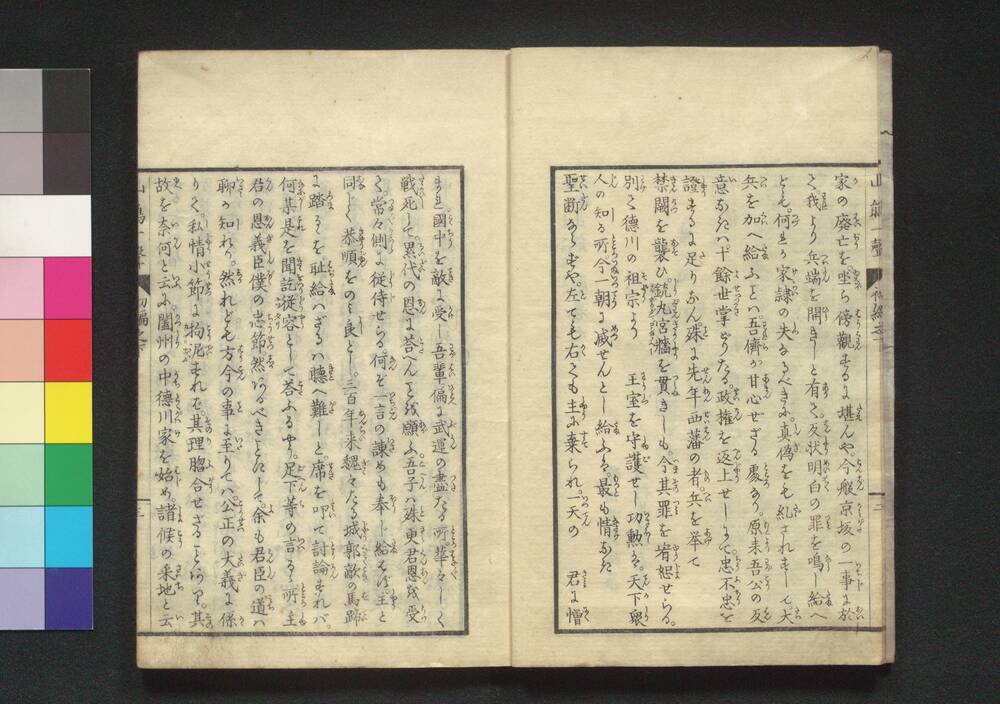 家の廃亡を坐ら傍觀するに堪んや。今般京坂の一事に於
て我より兵端を開きしと有て。反状明白の罪を鳴し給へ
ども。何ぞ家隷の失なるべきに。真偽をも糺されずして大
兵を加へ給ふとハ。吾儕が甘心せざる處なり。原来吾公の反
意なきハ十餘世掌どりたる。政権を返上せしにて。忠不忠を
證するに足りなん。殊に先年西藩の者。兵を挙て
禁闕を襲ひ。銃丸宮牆を貫きしも。今其罪を宥恕せらる。
別て徳川の祖宗より　王室を守護せし功勲ハ。天下衆
人の知る所。今一朝に滅せんとし給ふハ。最も情なき
聖断ならずや。左ても右ても主に棄られ。一天の　君に憎
まれ。國中を敵に受し吾輩。偏に武運の盡たる所。華々しく
戦死して累代の恩に荅へんことを願ふ。吾子ハ殊更君恩を受
て常々側に従侍せらる。何ぞ一言の諫めも奉し給はず。主と
同じく恭順をのミ良とし。三百年来巍々たる城郭。敵の馬蹄
に踏るゝを耻給ハざるハ聴へ難しと。席を叩て討論すれバ。
何某是を聞訖。従容として荅ふるやう。足下等の言るゝ所。主
君の恩義臣僕の忠節然あるべきことにして。余も君臣の道ハ
聊か知れり。然れども方今の事に至りてハ。公正の大義に係
りて。私情小節に拘泥すれば。其理脗合せざることあり。其
故を奈何と云ふに。闔州の中徳川家を始め。諸侯の采地と云